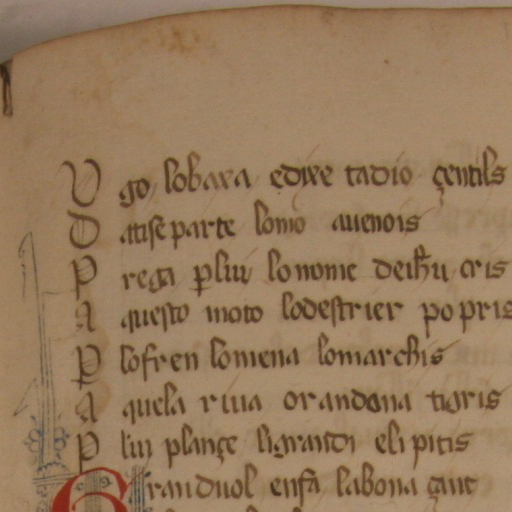 V go lobaxa edixe tadio çentils
D atise parte lomo auenois
P rega p̱ lui lo nome deih̅u cris
A questo moto lodestrier po pris
P lofren lomena lomarchis
A quela riua orandona tigris
P lui plançe ligrandi eli pitis
G randuol enfa labona çant